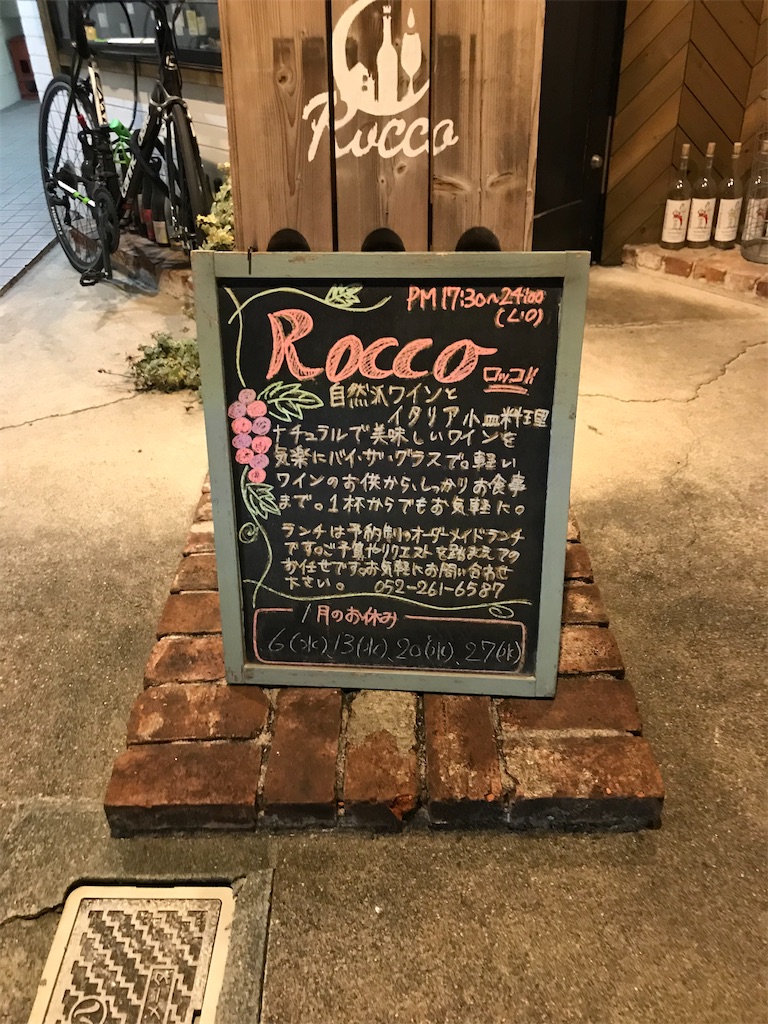 Rocco
PM 17:30~24:00
(L.O)
Rocco
ロッコ!!
自然派ワインと
イタリア小皿料理
ナチュラルで美味しいワインを
気楽にバイ・ザ・グラスで。軽い
ワインのお供から、しっかりお食事
まで。1杯からでもお気軽に。
ランチは予約制のオーダーメイドランチ
です。ご予算やリクエストを踏まえての
お任せです。お気軽にお問い合わせ
下さい。 052-261-6587
1月のお休み
6(水)、13(水)、20(水)、27(水)